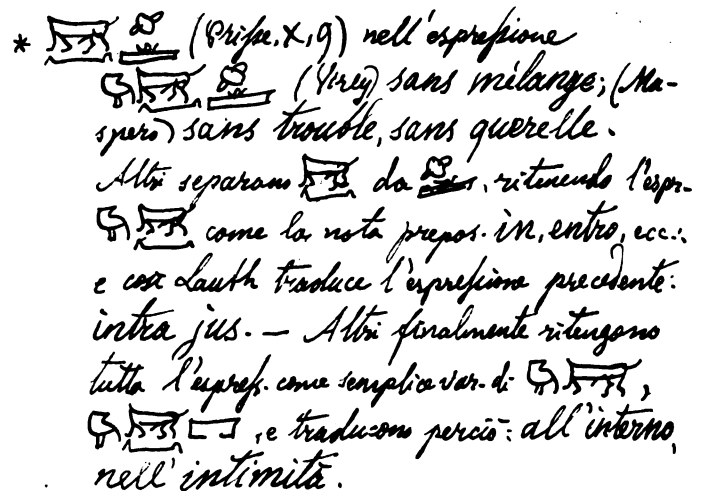 * (Prisse, X, 9) nell'espressione
(Virey) sans mélange; (Ma-
spero) sans trouble, sans querelle.
Altri separano da, ritenendo l'espr-
come la nota prepos. in, entro, ecc.:
e così Lauth traduce l'espressione precedente:
intra jus. — Altri finalmente ritengono
tutta l'espress. come semplice var. di ,
, e traducono perciò: all'interno,
nell'intimità.